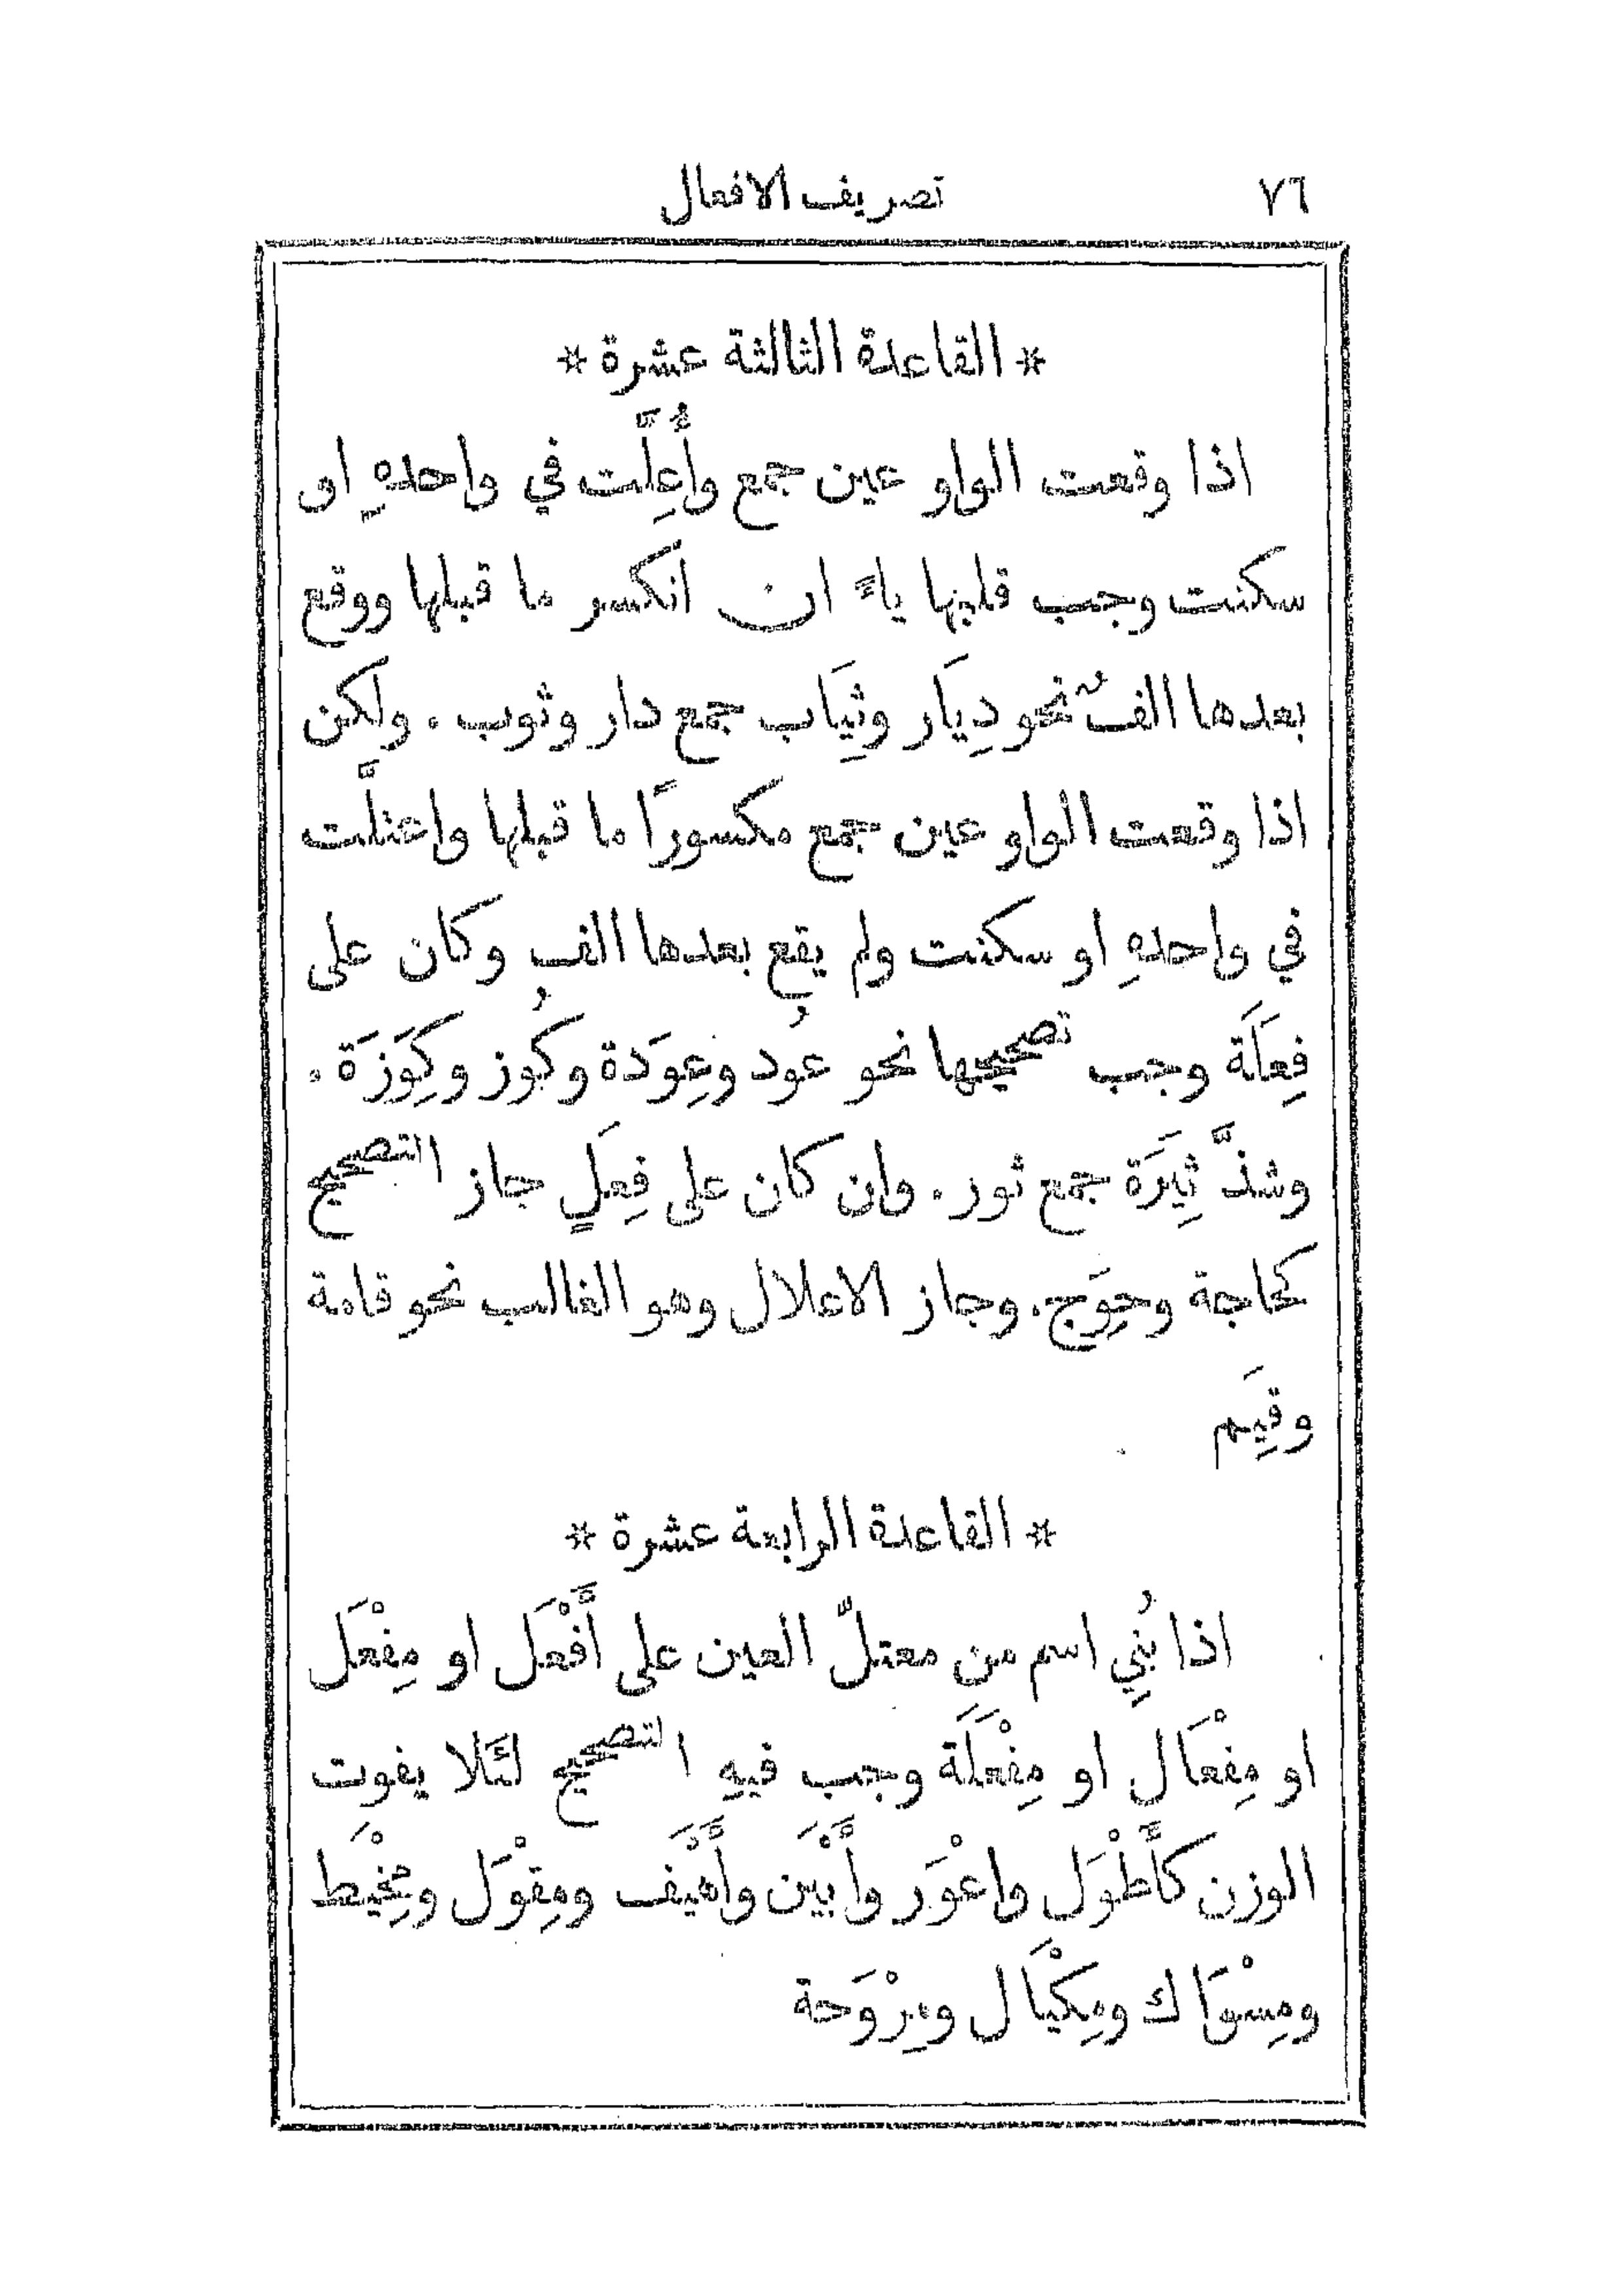 ٧٦ تصريف الافعال
* القاعدة الثالثة عشرة *
اذا وقعت الواو عين جمع وأُعِلَّت في واحدهِ او
سكنت وجب قلبها ياءً ان انكسر ما قبلها ووقع
بعدها الفٌ نحو دِيَار وثِيَاب جمع دار وثوب . ولكن
اذا وقعت الواو عين جمع مكسورًا ما قبلها واعتلَّت
في واحدهِ او سكنت ولم يقع بعدها الف وكان على
فِعَلَة وجب تصحيحها نحو عُود وعِوَدة وكُوز وكِوَزَة .
وشذَّ ثِيَرَة جمع ثور . وان كان على فِعَلٍ جاز التصحيح
كحاجة وحِوَج . وجاز الاعلال وهو الغالب نحو قامة
وقِيَم
* القاعدة الرابعة عشرة *
اذا بُنِي اسم من معتلّ العين على أَفْعَل او مِفْعَل
او مِفْعَال او مِفْعَلَة وجب فيهِ التصحيح لئَلا يفوت
الوزن كأَطْوَل واعْوَر وأَبْيَن وأَهْيَف ومِقْوَل ومِخْيَط
ومِسْوَاك ومِكْيَال ومِرْوَحة